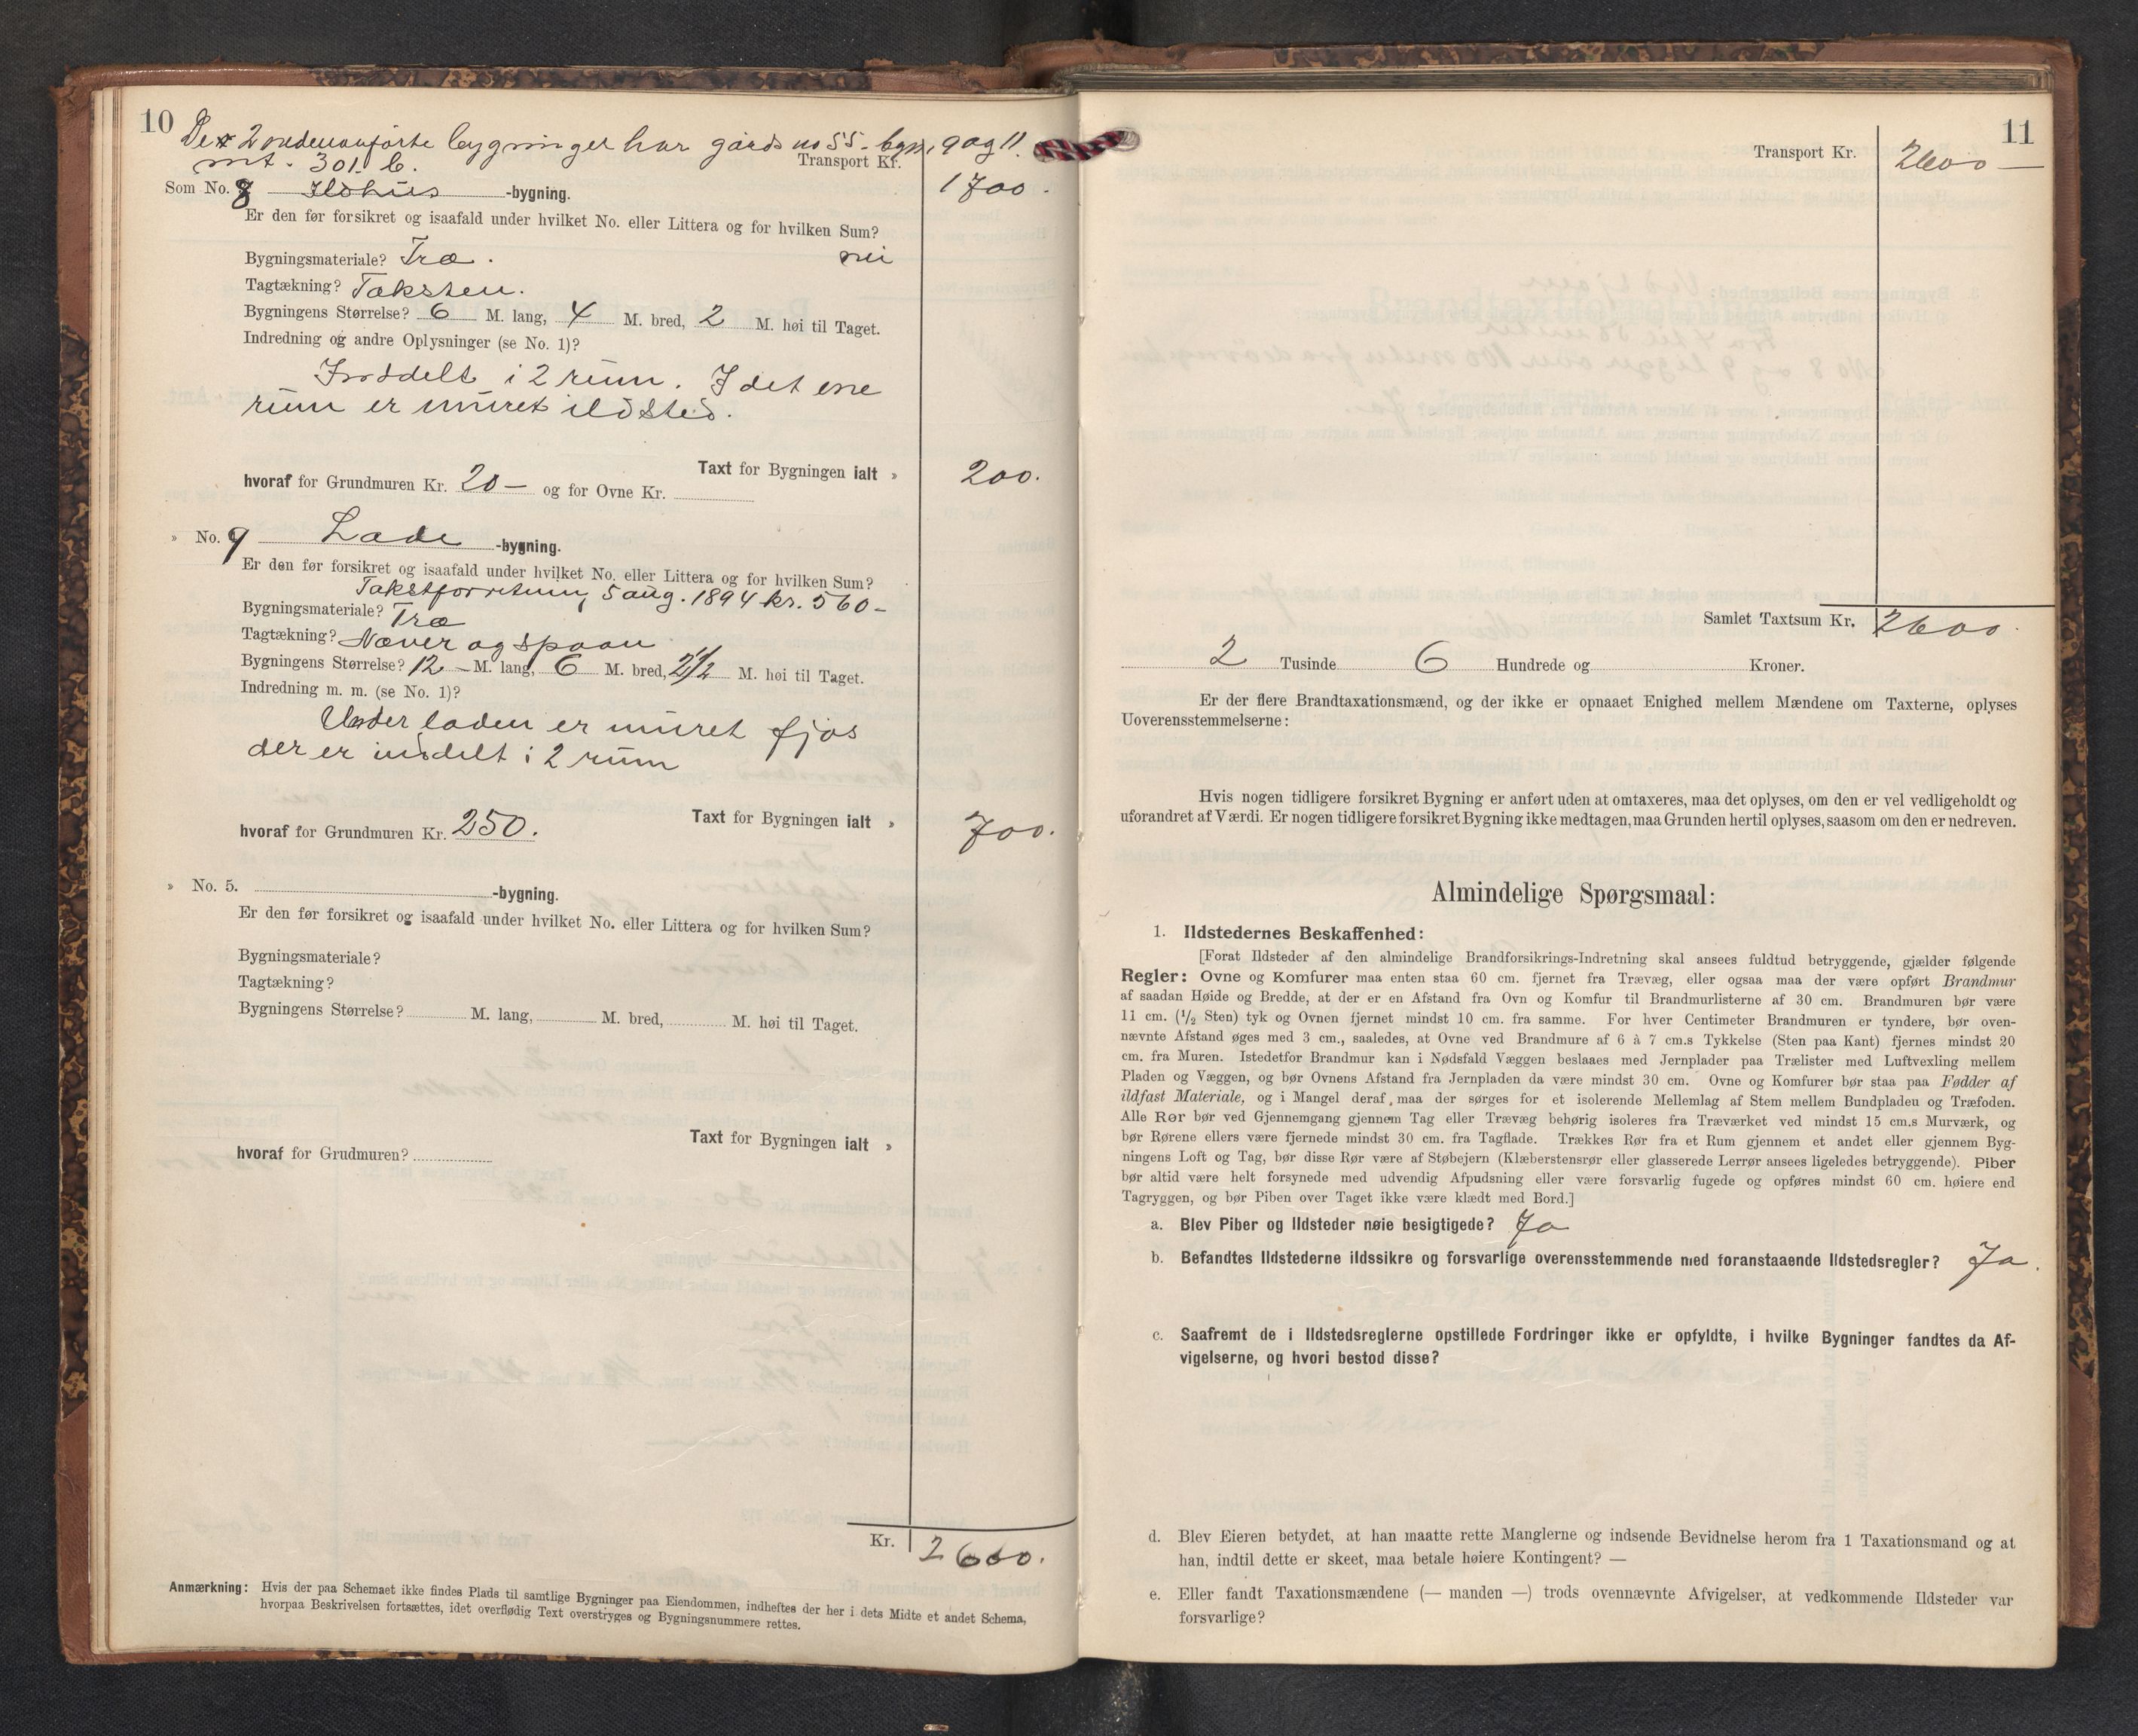 10
De 2 nedenanførte bygninger har gårds no 55 - bgn, 9 og 11.
mt. 301. b.
Transport Kr. 1700.
Som No. 8 Ildhus -bygning.
Er den før forsikret og isaafald under hvilket No. eller Littera og for hvilken Sum?
nei
Bygningsmateriale? Træ.
Tagtækning? Taksten.
Bygningens Størrelse? 6 M. lang, 4 M. bred, 2 M. høi til Taget.
Indredning og andre Oplysninger (se No. 1)?
Inddelt i 2 rum. I det ene
rum er muret ildsted.
Taxt for Bygningen ialt » 200.
hvoraf for Grundmuren Kr. 20 — og for Ovne Kr.
» No. 9 Lade -bygning.
Er den før forsikret og isaafald under hvilket No. eller Littera og for hvilken Sum?
Takstforretning 5 aug. 1894 kr. 560 -
Bygningsmateriale? Træ
Tagtækning? Næver og spaan
Bygningens Størrelse? 12 - M. lang, 6 M. bred, 2 1/2 M. høi til Taget.
Indredning m. m. (se No. 1)?
Under laden er muret fjøs
der er inddelt i 2 rum
Taxt for Bygningen ialt » 700.
hvoraf for Grundmuren Kr. 250.
» No. 5. -bygning.
Er den før forsikret og isaafald under hvilket No. eller Littera og for hvilken Sum?
Bygningsmateriale?
Tagtækning?
Bygningens Størrelse? M. lang, M. bred, M. høi til Taget.
Taxt for Bygningen ialt »
hvoraf for Grudmuren?
Kr. 2600.
Anmærkning: Hvis der paa Schemaet ikke findes Plads til samtlige Bygninger paa Eiendommen, indheftes der her i dets Midte et andet Schema,
hvorpaa Beskrivelsen fortsættes, idet overflødig Text overstryges og Bygningsnummere rettes.
11
Transport Kr. 2600 —
Samlet Taxtsum Kr. 2600.
2 Tusinde 6 Hundrede og Kroner.
Er der flere Brandtaxationsmænd, og der ikke er opnaaet Enighed mellem Mændene om Taxterne, oplyses
Uoverensstemmelserne:
Hvis nogen tidligere forsikret Bygning er anført uden at omtaxeres, maa det oplyses, om den er vel vedligeholdt og
uforandret af Værdi. Er nogen tidligere forsikret Bygning ikke medtagen, maa Grunden hertil oplyses, saasom om den er nedreven.
Almindelige Spørgsmaal:
1. Ildstedernes Beskaffenhed:
[Forat Ildsteder af den almindelige Brandforsikrings-Indretning skal ansees fuldtud betryggende, gjælder følgende
Regler: Ovne og Komfurer maa enten staa 60 cm. fjernet fra Trævæg, eller ogsaa maa der være opført Brandmur
af saadan Høide og Bredde, at der er en Afstand fra Ovn og Komfur til Brandmurlisterne af 30 cm. Brandmuren bør være
11 cm. (1/2 Sten) tyk og Ovnen fjernet mindst 10 cm. fra samme. For hver Centimeter Brandmuren er tyndere, bør oven-
nævnte Afstand øges med 3 cm., saaledes, at Ovne ved Brandmure af 6 à 7 cm.s Tykkelse (Sten paa Kant) fjernes mindst 20
cm. fra Muren. Istedetfor Brandmur kan i Nødsfald Væggen beslaaes med Jernplader paa Trælister med Luftvexling mellem
Pladen og Væggen, og bør Ovnens Afstand fra Jernpladen da være mindst 30 cm. Ovne og Komfurer bør staa paa Fødder af
ildfast Materiale, og i Mangel deraf maa der sørges for et isolerende Mellemlag af Stem mellem Bundpladeu og Træfoden.
Alle Rør bør ved Gjennemgang gjennem Tag eller Trævæg behørig isoleres fra Træværket ved mindst 15 cm.s Murværk, og
bør Rørene ellers være fjernede mindst 30 cm. fra Tagflade. Trækkes Rør fra et Rum gjennem et andet eller gjennem Byg-
ningens Loft og Tag, bør disse Rør være af Støbejern (Klæberstensrør eller glasserede Lerrør ansees ligeledes betryggende). Piber
bør altid være helt forsynede med udvendig Afpudsning eller være forsvarlig fugede og opføres mindst 60 cm. høiere end
Tagryggen, og bør Piben over Taget ikke være klædt med Bord.]
a. Blev Piber og Ildsteder nøie besigtigede? Ja
b. Befandtes Ildstederne ildssikre og forsvarlige overensstemmende med foranstaaende Ildstedsregler? Ja.
c. Saafremt de i Ildstedsreglerne opstillede Fordringer ikke er opfyldte, i hvilke Bygninger fandtes da Af-
vigelserne, og hvori bestod disse?
d. Blev Eieren betydet, at han maatte rette Manglerne og indsende Bevidnelse herom fra 1 Taxationsmand og at
han, indtil dette er skeet, maa betale høiere Kontingent? —
e. Eller fandt Taxationsmændene (— manden —) trods ovennævnte Afvigelser, at vedkommende Ildsteder var
forsvarlige?